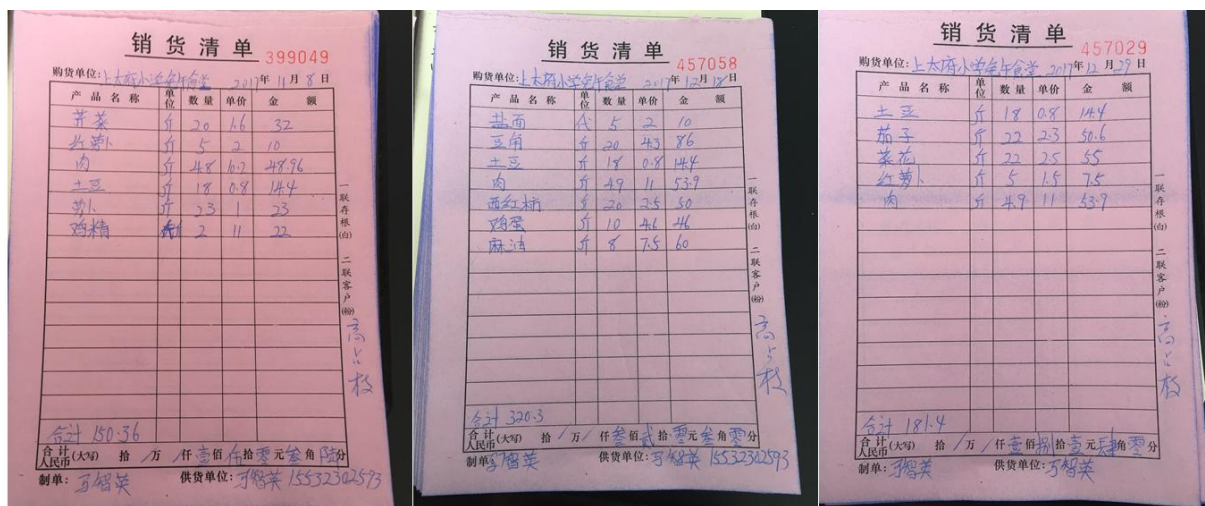 销货清单 399049
购货单位:上太府小学午食堂 2017年11月8日
产品名称 单位 数量 单价 金额
芹菜 斤 20 1.6 32
红萝卜 斤 5 2 10
肉 斤 4.8 10.2 48.96
土豆 斤 18 0.8 14.4
萝卜 斤 23 1 23
鸡精 斤 2 11 22
合计 150.36
合计人民币(大写) 拾/万/仟壹佰伍拾零元叁角陆分
制单: 智英 供货单位: 智英 15532302593
一联存根(白) 二联客户(粉)
高占枝
销货清单 457058
购货单位:上太府小学午食堂 2017年12月18日
产品名称 单位 数量 单价 金额
盐面 代 5 2 10
豆角 斤 20 4.3 86
土豆 斤 18 0.8 14.4
肉 斤 4.9 11 53.9
西红柿 斤 20 2.5 50
鸡蛋 斤 10 4.6 46
麻油 斤 8 7.5 60
合计 320.3
合计人民币(大写) 拾/万/仟叁佰贰拾零元叁角零分
制单: 智英 供货单位: 智英 15532302593
一联存根(白) 二联客户(粉)
高占枝
销货清单 457029
购货单位:上太府小学午食堂 2017年12月29日
产品名称 单位 数量 单价 金额
土豆 斤 18 0.8 14.4
茄子 斤 22 2.3 50.6
菜花 斤 22 2.5 55
红萝卜 斤 5 1.5 7.5
肉 斤 4.9 11 53.9
合计 181.4
合计人民币(大写) 拾/万/仟壹佰捌拾壹元肆角零分
制单: 智英 供货单位: 智英
一联存根(白) 二联客户(粉)
高占枝